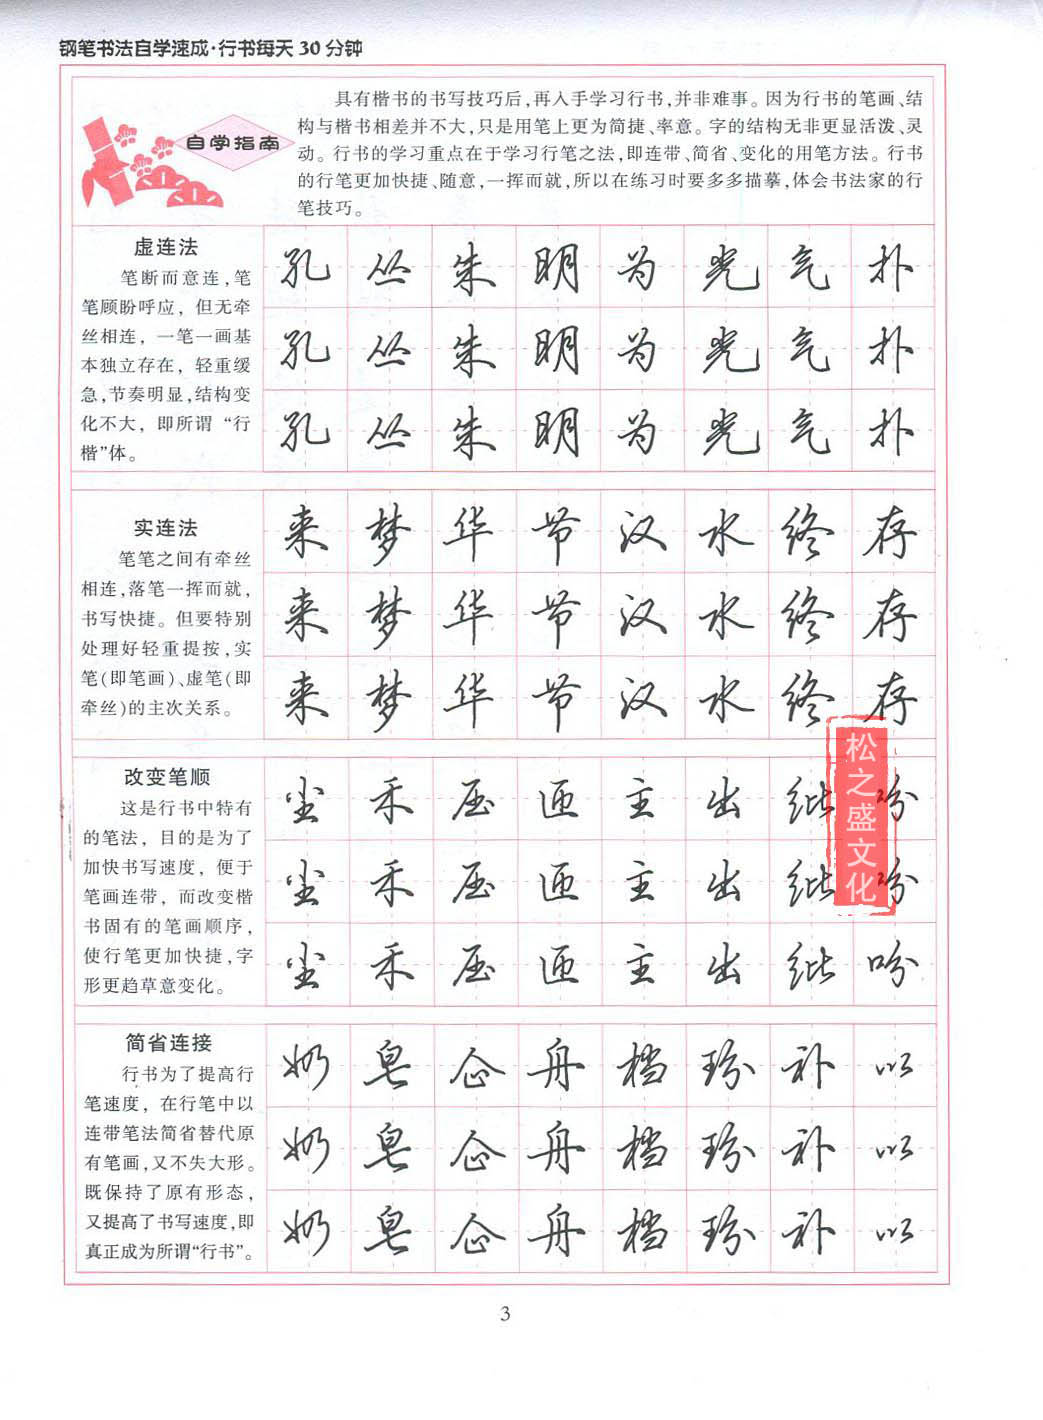 钢笔书法自学速成·行书每天30分钟
自学指南
具有楷书的书写技巧后,再入手学习行书,并非难事。因为行书的笔画、结
构与楷书相差并不大,只是用笔上更为简捷、率意。字的结构无非更显活泼、灵
动。行书的学习重点在于学习行笔之法,即连带、简省、变化的用笔方法。行书
的行笔更加快捷、随意,一挥而就,所以在练习时要多多描摹,体会书法家的行
笔技巧。
虚连法
笔断而意连,笔
笔顾盼呼应,但无牵
丝相连,一笔一画基
本独立存在,轻重缓
急,节奏明显,结构变
化不大,即所谓“行
楷”体。
孔丛朱明为光气扑
孔丛朱明为光气扑
孔丛朱明为光气扑
实连法
笔笔之间有牵丝
相连,落笔一挥而就,
书写快捷。但要特别
处理好轻重提按,实
笔(即笔画)、虚笔(即
牵丝)的主次关系。
来梦华节汉水终存
来梦华节汉水终存
来梦华节汉水终存
改变笔顺
这是行书中特有
的笔法,目的是为了
加快书写速度,便于
笔画连带,而改变楷
书固有的笔画顺序,
使行笔更加快捷,字
形更趋草意变化。
尘禾压匝主出纰吩
尘禾压匝主出纰吩
尘禾压匝主出纰吩
松之盛文化
简省连接
行书为了提高行
笔速度,在行笔中以
连带笔法简省替代原
有笔画,又不失大形。
既保持了原有形态,
又提高了书写速度,即
真正成为所谓“行书”。
奶皂舟档玢补以
奶皂舟档玢补以
奶皂舟档玢补以
3